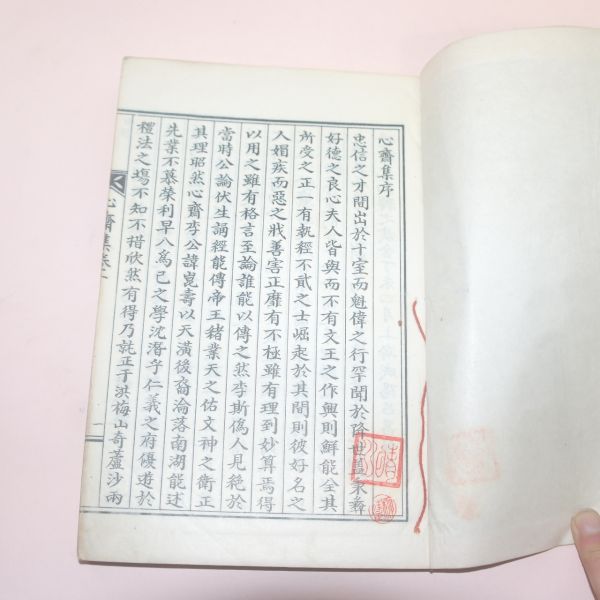 心齋集序
忠信之才間出於十室而魁偉之行罕聞於降世盖秉彛
好德之良心夫人皆與而不有文王之作興則鮮能全其
所受之正一有執經不貳之士崛起於其間則彼好名之
人媢疾而惡之戕善害正靡有不極雖有理到妙算焉得
以用之雖有格言至論誰能以傳之然李斯僞人見絶於
當時公論伏生誦經能傳帝王緖業天之佑文神之衛正
其理耶然心齋李公諱崑壽以天潢後裔淪落南湖能述
先業不慕榮利早八爲已之學沈潛乎仁義之府優遊於
禮法之場不知不措欣然有得乃就正于洪梅山奇蘆沙兩
心齋集卷一
一